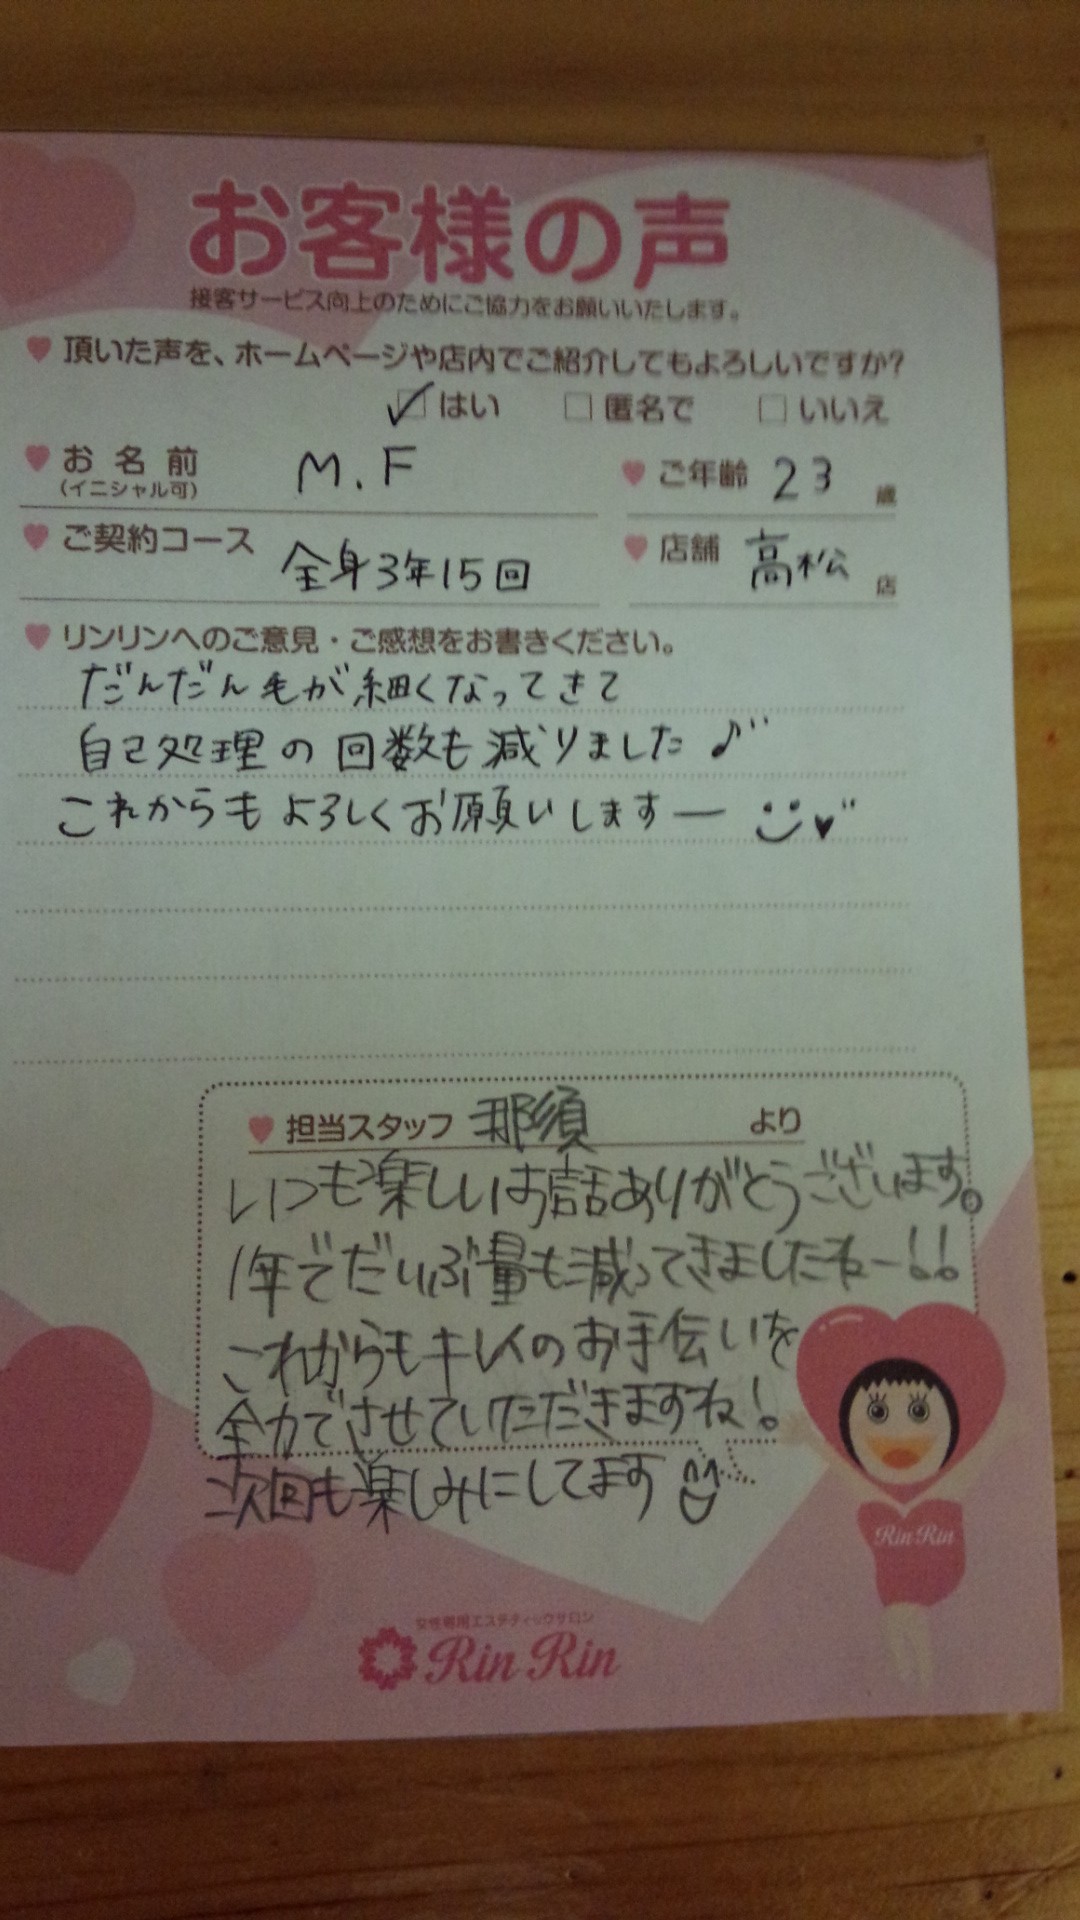 お客様の声
接客サービス向上のためにご協力をお願いいたします。
頂いた声を、ホームページや店内でご紹介してもよろしいですか?
はい 匿名で いいえ
お名前 M.F ご年齢 23 歳
(イニシャル可)
ご契約コース 全身3年15回 店舗 高松 店
リンリンへのご意見・ご感想をお書きください。
だんだん毛が細くなってきて
自己処理の回数も減りました♪
これからもよろしくお願いしますー
担当スタッフ 那須 より
いつも楽しいお話ありがとうございます。
1年でだいぶ量も減ってきましたねー!!
これからもキレイのお手伝いを
全力でさせていただきますね!
次回も楽しみにしてます
Rin Rin
女性専用エステティックサロン
Rin Rin